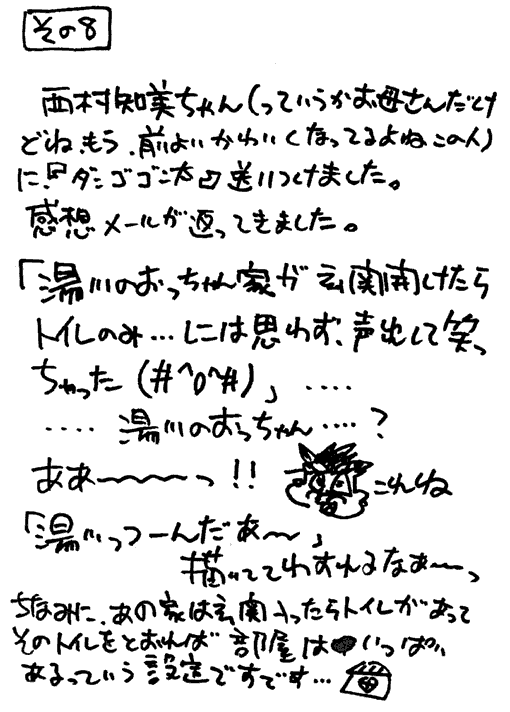 その8
西村知美ちゃん(っていうかお母さんだけ
どね、もう、前よりかわいくなってるよねこの人)
に、『ダンゴゴン太』送りつけました。
感想メールが返ってきました。
「湯川のおっちゃん家が玄関開けたら
トイレのみ…しには思わず、声出して笑っ
ちゃった(#^o^#)」‥‥
‥‥湯川のおっちゃん‥‥?
ああ〜〜〜っ!!
これね
「湯川っつーんだあ〜」
描いててわすれるなあ〜っ
ちなみに、あの家は玄関入ったらトイレがあって
そのトイレをとおれば部屋はいっぱい
あるっていう設定ですです…